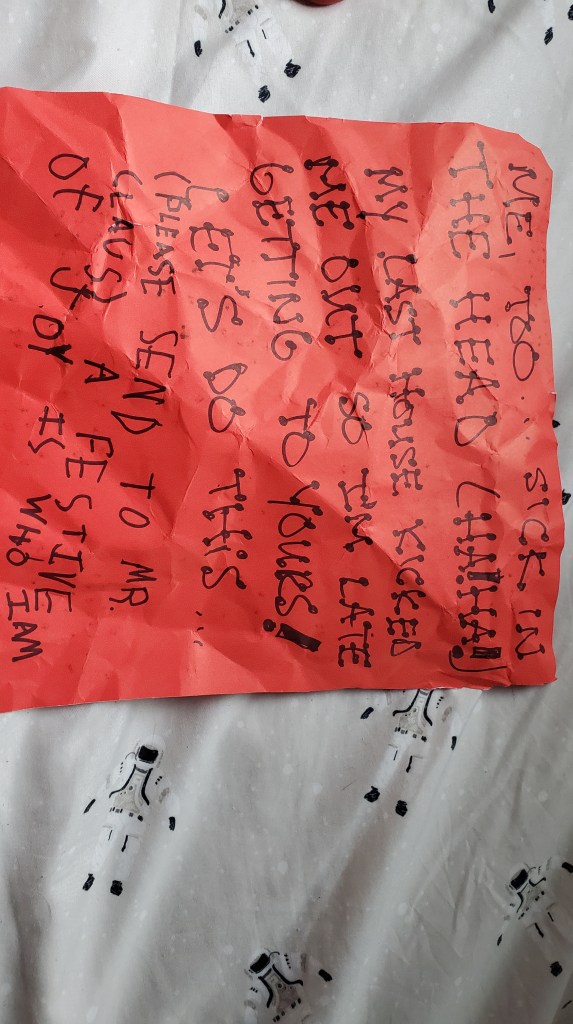 ME, TOO... SICK IN
THE HEAD (HAHHA!)
MY LAST HOUSE KICKED
ME OUT SO IM LATE
GETTING TO YOURS!
LET'S DO THIS...
(PLEASE SEND TO MR.
CLAUS) A FESTIVE
OF JOY IS WHO IAM